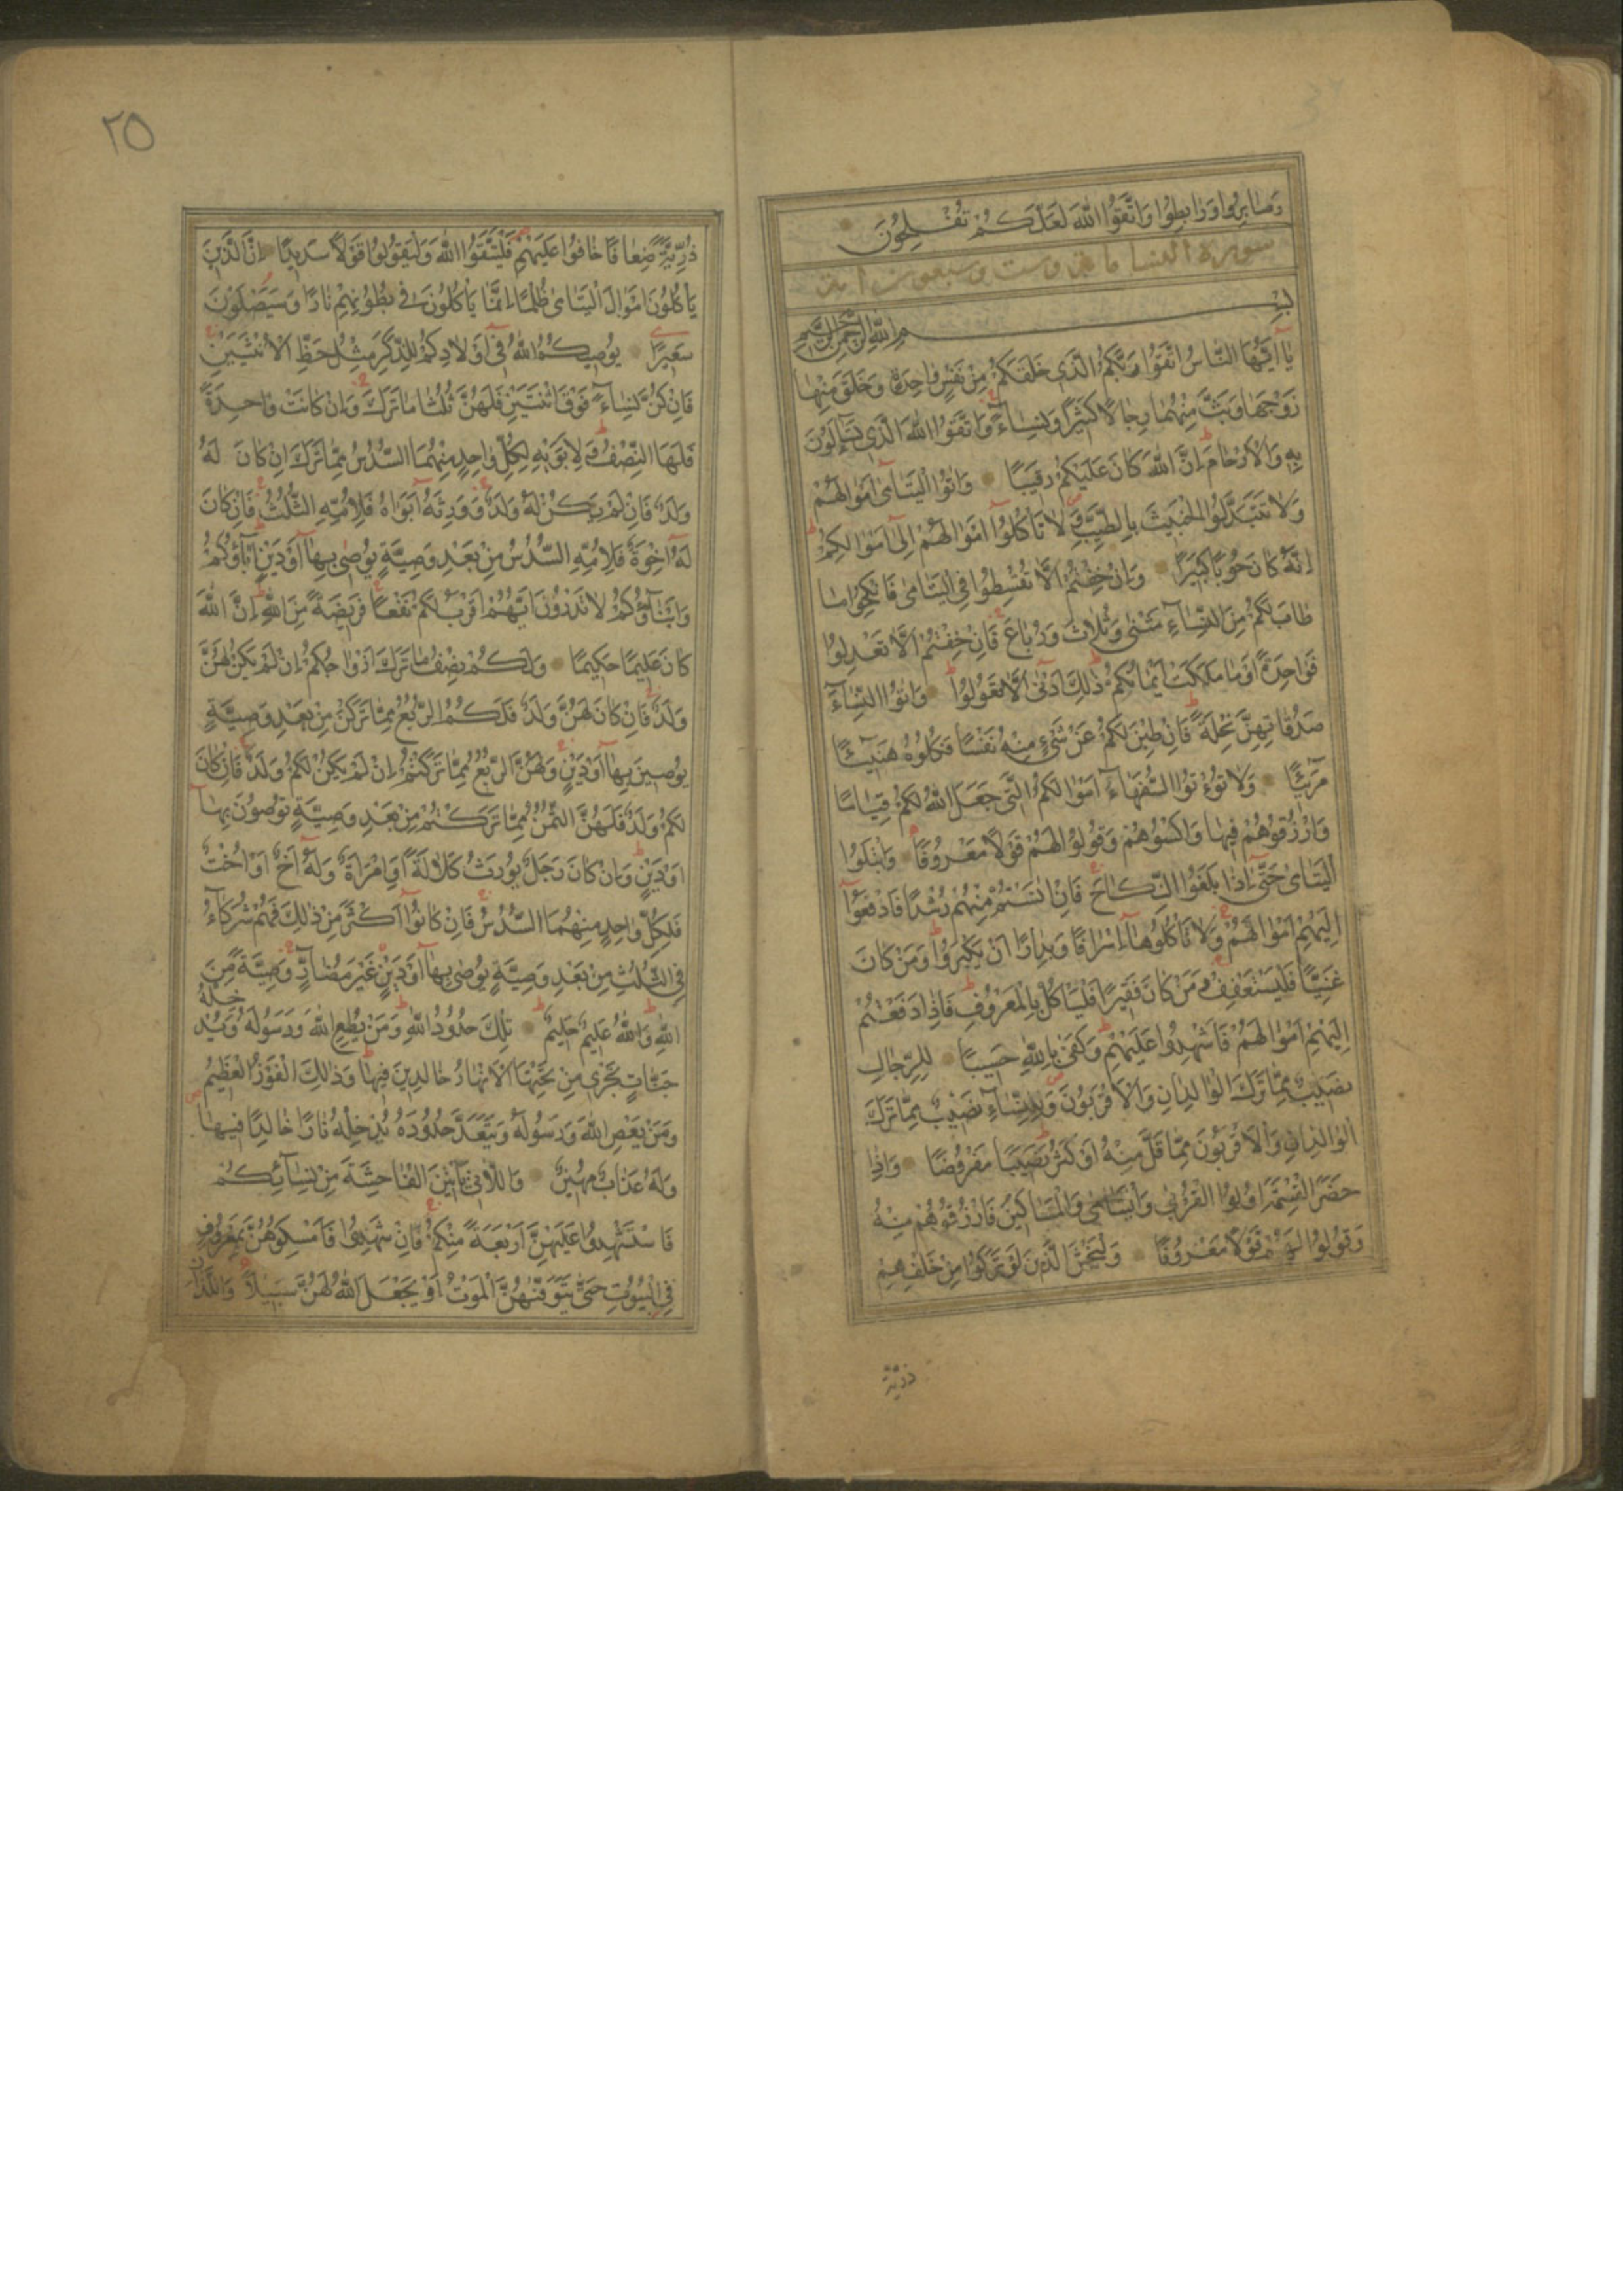 وَصَابِرُوا وَرَابِطُوا وَاتَّقُوا اللّٰهَ لَعَلَّكُمْ تُفْلِحُونَ
سورة النسا مائة وست وسبعون اية
بِسْمِ اللّٰهِ الرَّحْمٰنِ الرَّحِيمِ
يَا اَيُّهَا النَّاسُ اتَّقُوا رَبَّكُمُ الَّذِي خَلَقَكُمْ مِنْ نَفْسٍ وَاحِدَةٍ وَخَلَقَ مِنْهَا
زَوْجَهَا وَبَثَّ مِنْهُمَا رِجَالًا كَثِيرًا وَنِسَاءً وَاتَّقُوا اللّٰهَ الَّذِي تَسَاءَلُونَ
بِهِ وَالْاَرْحَامَ اِنَّ اللّٰهَ كَانَ عَلَيْكُمْ رَقِيبًا وَاٰتُوا الْيَتَامٰى اَمْوَالَهُمْ
وَلَا تَتَبَدَّلُوا الْخَبِيثَ بِالطَّيِّبِ وَلَا تَأْكُلُوا اَمْوَالَهُمْ اِلٰى اَمْوَالِكُمْ
اِنَّهُ كَانَ حُوبًا كَبِيرًا وَاِنْ خِفْتُمْ اَلَّا تُقْسِطُوا فِي الْيَتَامٰى فَانْكِحُوا مَا
طَابَ لَكُمْ مِنَ النِّسَاءِ مَثْنٰى وَثُلَاثَ وَرُبَاعَ فَاِنْ خِفْتُمْ اَلَّا تَعْدِلُوا
فَوَاحِدَةً اَوْ مَا مَلَكَتْ اَيْمَانُكُمْ ذٰلِكَ اَدْنٰى اَلَّا تَعُولُوا وَاٰتُوا النِّسَاءَ
صَدُقَاتِهِنَّ نِحْلَةً فَاِنْ طِبْنَ لَكُمْ عَنْ شَيْءٍ مِنْهُ نَفْسًا فَكُلُوهُ هَنِيئًا
مَرِيئًا وَلَا تُؤْتُوا السُّفَهَاءَ اَمْوَالَكُمُ الَّتِي جَعَلَ اللّٰهُ لَكُمْ قِيَامًا
وَارْزُقُوهُمْ فِيهَا وَاكْسُوهُمْ وَقُولُوا لَهُمْ قَوْلًا مَعْرُوفًا وَابْتَلُوا
الْيَتَامٰى حَتّٰى اِذَا بَلَغُوا النِّكَاحَ فَاِنْ اٰنَسْتُمْ مِنْهُمْ رُشْدًا فَادْفَعُوا
اِلَيْهِمْ اَمْوَالَهُمْ وَلَا تَأْكُلُوهَا اِسْرَافًا وَبِدَارًا اَنْ يَكْبَرُوا وَمَنْ كَانَ
غَنِيًّا فَلْيَسْتَعْفِفْ وَمَنْ كَانَ فَقِيرًا فَلْيَأْكُلْ بِالْمَعْرُوفِ فَاِذَا دَفَعْتُمْ
اِلَيْهِمْ اَمْوَالَهُمْ فَاَشْهِدُوا عَلَيْهِمْ وَكَفٰى بِاللّٰهِ حَسِيبًا لِلرِّجَالِ
نَصِيبٌ مِمَّا تَرَكَ الْوَالِدَانِ وَالْاَقْرَبُونَ وَلِلنِّسَاءِ نَصِيبٌ مِمَّا تَرَكَ
الْوَالِدَانِ وَالْاَقْرَبُونَ مِمَّا قَلَّ مِنْهُ اَوْ كَثُرَ نَصِيبًا مَفْرُوضًا وَاِذَا
حَضَرَ الْقِسْمَةَ اُولُوا الْقُرْبٰى وَالْيَتَامٰى وَالْمَسَاكِينُ فَارْزُقُوهُمْ مِنْهُ
وَقُولُوا لَهُمْ قَوْلًا مَعْرُوفًا وَلْيَخْشَ الَّذِينَ لَوْ تَرَكُوا مِنْ خَلْفِهِمْ
ذرية
٢٥
ذُرِّيَّةً ضِعَافًا خَافُوا عَلَيْهِمْ فَلْيَتَّقُوا اللّٰهَ وَلْيَقُولُوا قَوْلًا سَدِيدًا اِنَّ الَّذِينَ
يَأْكُلُونَ اَمْوَالَ الْيَتَامٰى ظُلْمًا اِنَّمَا يَأْكُلُونَ فِي بُطُونِهِمْ نَارًا وَسَيَصْلَوْنَ
سَعِيرًا يُوصِيكُمُ اللّٰهُ فِي اَوْلَادِكُمْ لِلذَّكَرِ مِثْلُ حَظِّ الْاُنْثَيَيْنِ
فَاِنْ كُنَّ نِسَاءً فَوْقَ اثْنَتَيْنِ فَلَهُنَّ ثُلُثَا مَا تَرَكَ وَاِنْ كَانَتْ وَاحِدَةً
فَلَهَا النِّصْفُ وَلِاَبَوَيْهِ لِكُلِّ وَاحِدٍ مِنْهُمَا السُّدُسُ مِمَّا تَرَكَ اِنْ كَانَ لَهُ
وَلَدٌ فَاِنْ لَمْ يَكُنْ لَهُ وَلَدٌ وَوَرِثَهُ اَبَوَاهُ فَلِاُمِّهِ الثُّلُثُ فَاِنْ كَانَ
لَهُ اِخْوَةٌ فَلِاُمِّهِ السُّدُسُ مِنْ بَعْدِ وَصِيَّةٍ يُوصٰى بِهَا اَوْ دَيْنٍ اٰبَاؤُكُمْ
وَاَبْنَاؤُكُمْ لَا تَدْرُونَ اَيُّهُمْ اَقْرَبُ لَكُمْ نَفْعًا فَرِيضَةً مِنَ اللّٰهِ اِنَّ اللّٰهَ
كَانَ عَلِيمًا حَكِيمًا وَلَكُمْ نِصْفُ مَا تَرَكَ اَزْوَاجُكُمْ اِنْ لَمْ يَكُنْ لَهُنَّ
وَلَدٌ فَاِنْ كَانَ لَهُنَّ وَلَدٌ فَلَكُمُ الرُّبُعُ مِمَّا تَرَكْنَ مِنْ بَعْدِ وَصِيَّةٍ
يُوصِينَ بِهَا اَوْ دَيْنٍ وَلَهُنَّ الرُّبُعُ مِمَّا تَرَكْتُمْ اِنْ لَمْ يَكُنْ لَكُمْ وَلَدٌ فَاِنْ كَانَ
لَكُمْ وَلَدٌ فَلَهُنَّ الثُّمُنُ مِمَّا تَرَكْتُمْ مِنْ بَعْدِ وَصِيَّةٍ تُوصُونَ بِهَا
اَوْ دَيْنٍ وَاِنْ كَانَ رَجُلٌ يُورَثُ كَلَالَةً اَوِ امْرَاَةٌ وَلَهُ اَخٌ اَوْ اُخْتٌ
فَلِكُلِّ وَاحِدٍ مِنْهُمَا السُّدُسُ فَاِنْ كَانُوا اَكْثَرَ مِنْ ذٰلِكَ فَهُمْ شُرَكَاءُ
فِي الثُّلُثِ مِنْ بَعْدِ وَصِيَّةٍ يُوصٰى بِهَا اَوْ دَيْنٍ غَيْرَ مُضَارٍّ وَصِيَّةً مِنَ
اللّٰهِ وَاللّٰهُ عَلِيمٌ حَلِيمٌ تِلْكَ حُدُودُ اللّٰهِ وَمَنْ يُطِعِ اللّٰهَ وَرَسُولَهُ يُدْخِلْهُ
جَنَّاتٍ تَجْرِي مِنْ تَحْتِهَا الْاَنْهَارُ خَالِدِينَ فِيهَا وَذٰلِكَ الْفَوْزُ الْعَظِيمُ
وَمَنْ يَعْصِ اللّٰهَ وَرَسُولَهُ وَيَتَعَدَّ حُدُودَهُ يُدْخِلْهُ نَارًا خَالِدًا فِيهَا
وَلَهُ عَذَابٌ مُهِينٌ وَاللَّاتِي يَأْتِينَ الْفَاحِشَةَ مِنْ نِسَائِكُمْ
فَاسْتَشْهِدُوا عَلَيْهِنَّ اَرْبَعَةً مِنْكُمْ فَاِنْ شَهِدُوا فَاَمْسِكُوهُنَّ بِمَعْرُوفٍ
فِي الْبُيُوتِ حَتّٰى يَتَوَفّٰهُنَّ الْمَوْتُ اَوْ يَجْعَلَ اللّٰهُ لَهُنَّ سَبِيلًا وَاللَّذَانِ